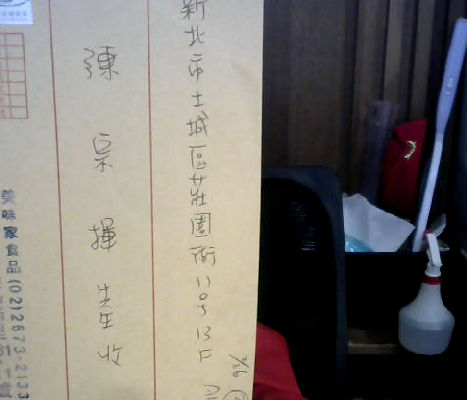 新北市土城區莊園街11号13F
陳宗揮先生收
美味家食品(02)2673-2133